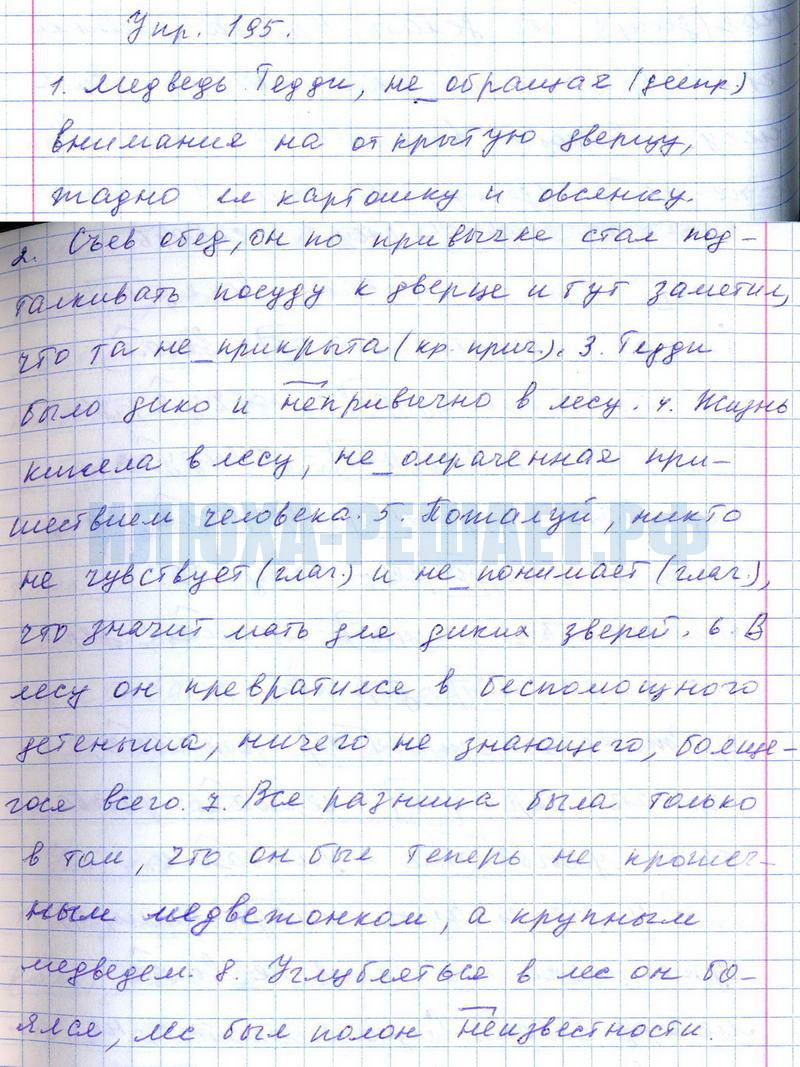 Упр. 195.
1. Медведь Тедди, не_обращая (деепр.)
внимания на открытую дверцу,
жадно ел картошку и овсянку.
2. Съев обед, он по привычке стал под-
талкивать посуду к дверце и тут заметил,
что та не_прикрыта (кр. прич.). 3. Тедди
было дико и непривычно в лесу. 4. Жизнь
кипела в лесу, не_омраченная при-
шествием человека. 5. Пожалуй, никто
не чувствует (глаг.) и не_понимает (глаг.),
что значит мать для диких зверей. 6. В
лесу он превратился в беспомощного
детеныша, ничего не знающего, бояще-
гося всего. 7. Вся разница была только
в том, что он был теперь не крошеч-
ным медвежонком, а крупным
медведем. 8. Углубляться в лес он бо-
ялся, лес был полон неизвестности.
ИЛЮХА-РЕШАЕТ.РФ